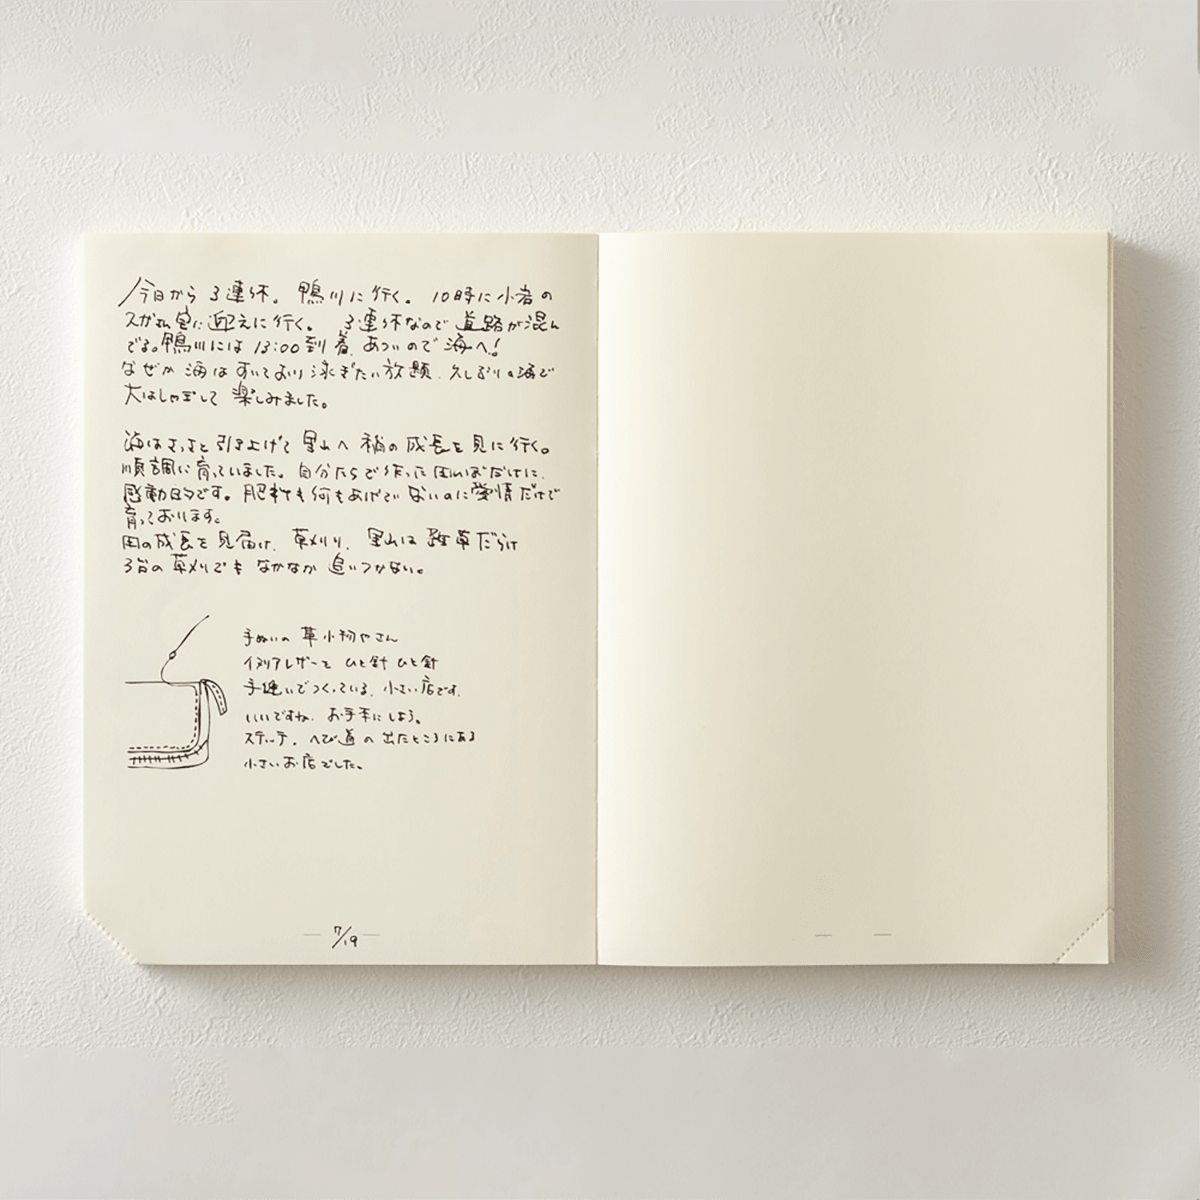 今日から3連休。鴨川に行く。10時に小岩の
スガさん宅に迎えに行く。3連休なので道路が混ん
でる。鴨川には13:00到着、あついので海へ!
なぜか海はすいており泳ぎたい放題、久しぶりの海で
大はしゃぎして楽しみました。
海はさっさと引き上げて里山へ稲の成長を見に行く。
順調に育っていました。自分たちで作った田んぼだけに、
感動的です。肥料も何もあげていないのに愛情だけで
育っております。
田の成長を見届け、草刈り、里山は雑草だらけ
3台の草刈でもなかなか追いつかない。
手ぬいの革小物やさん
イタリアレザーを ひと針 ひと針
手縫いでつくっている、小さい店です。
いいですね、お手本にしよう。
ステッチ、へび道の出たところにある
小さいお店でした。
7/19